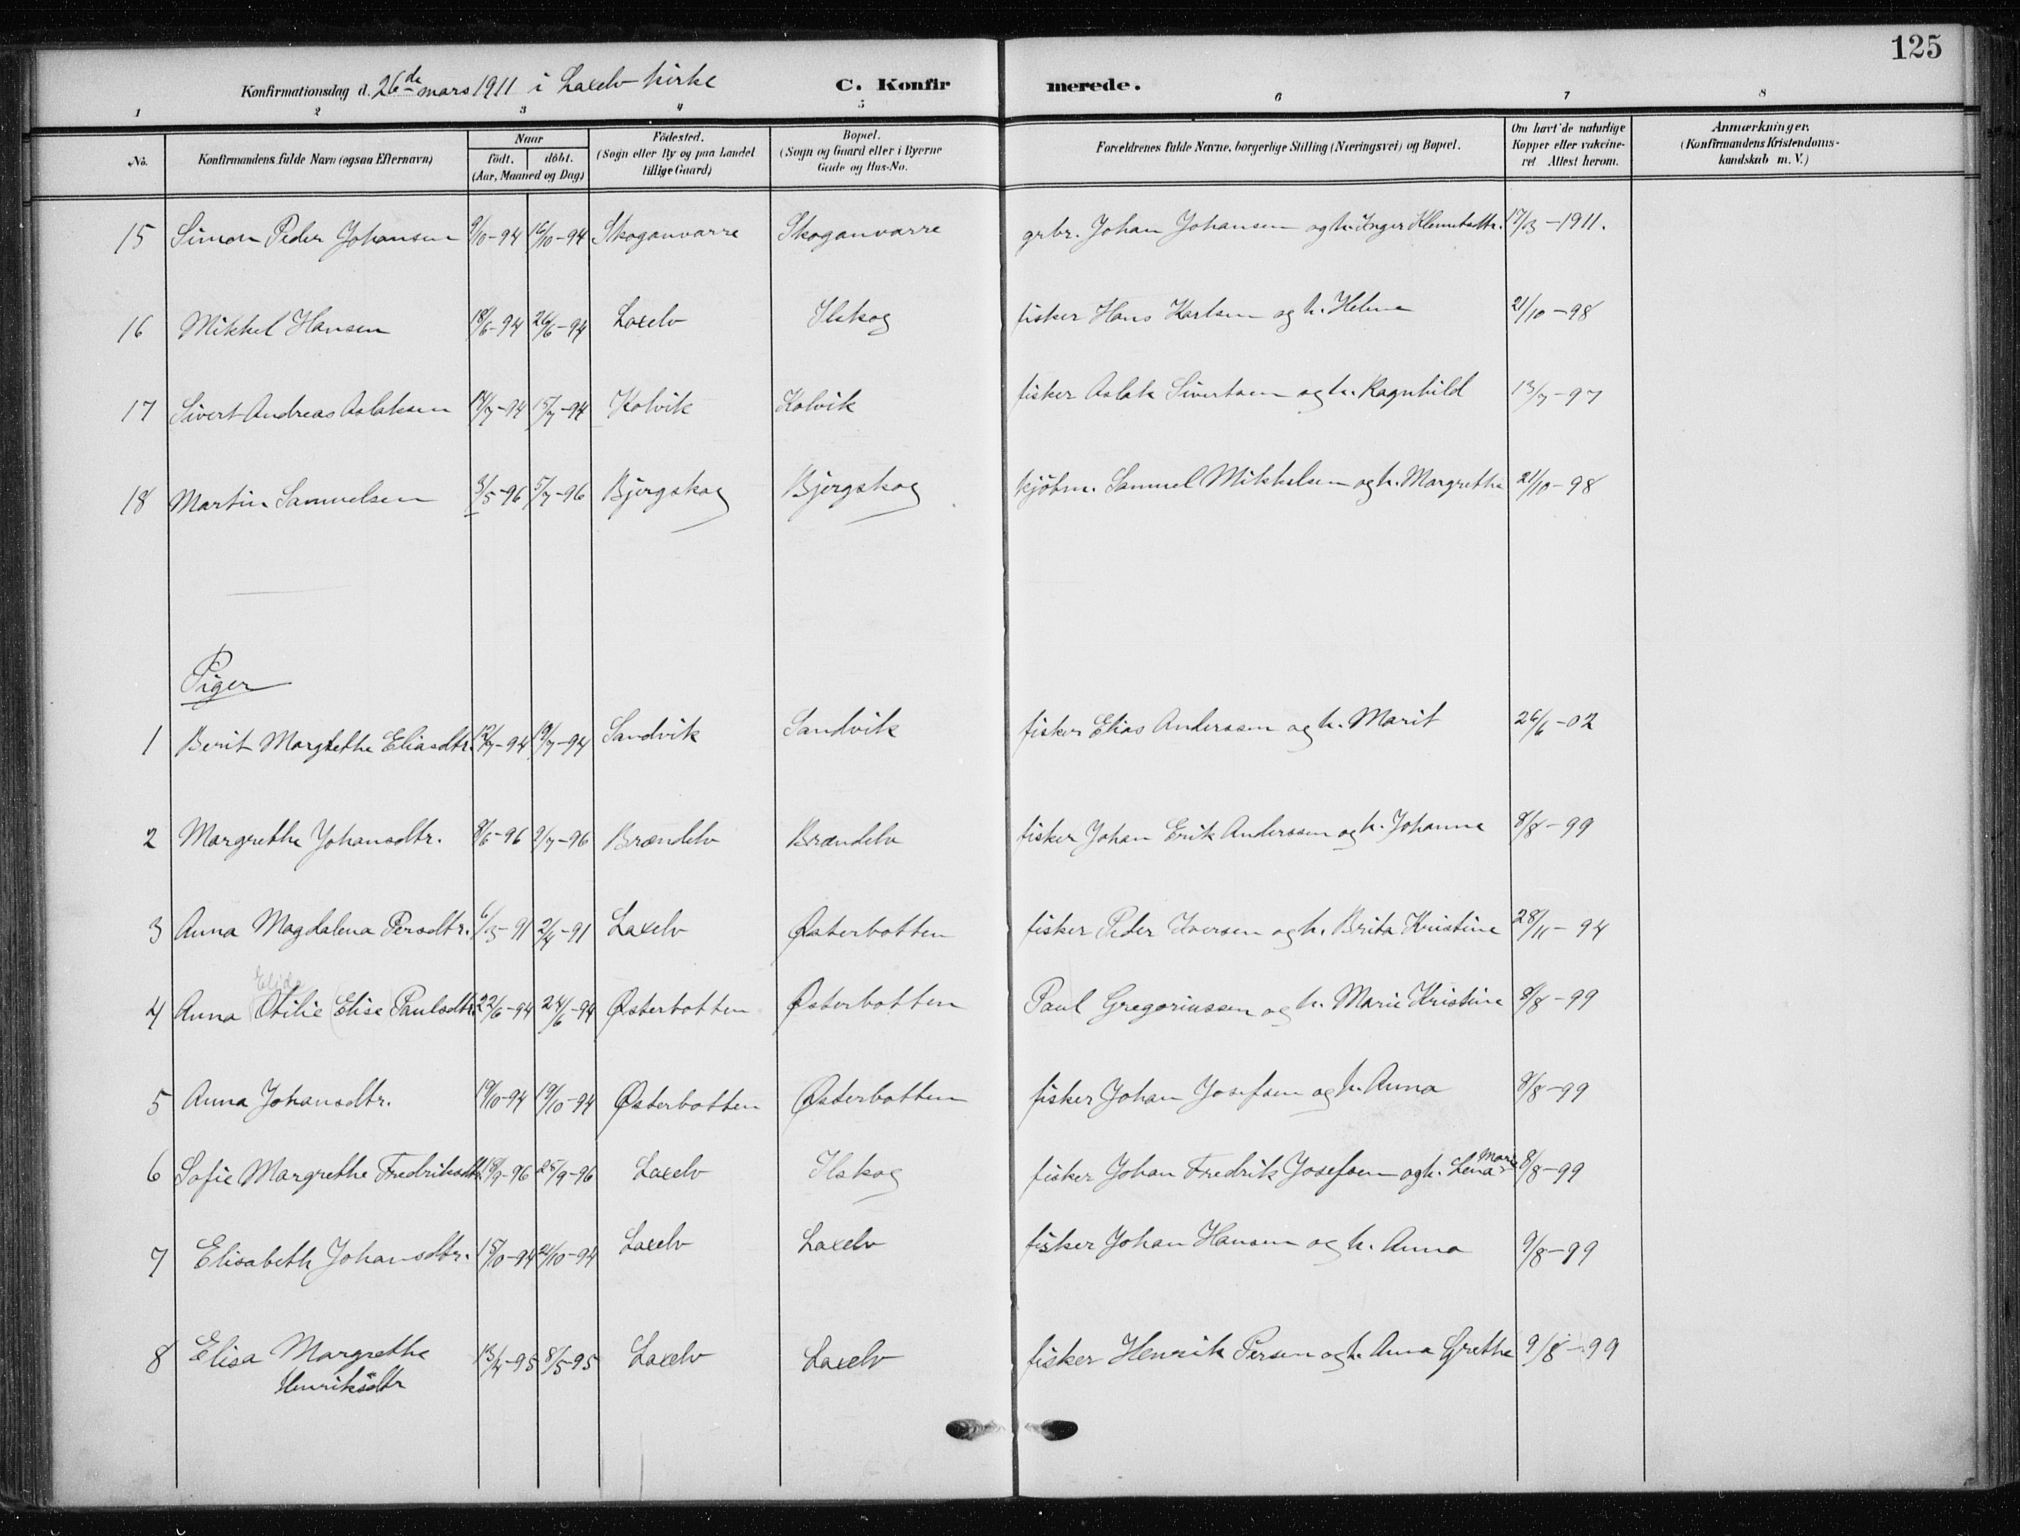 125
Konfirmationsdag d. 26de mars 1911 i Laxelv kirke C. Konfirmerede.
1 2 3 4 5 6 7 8
No. Konfirmandens fulde Navn (ogsaa Efternavn) Naar födt. döbt. (Aar, Maaned og Dag) Födested. (Sogn eller By og paa Landet tillige Gaard) Bopæl. (Sogn og Gaard eller i Byerne Gade og Hus-No. Forældrenes fulde Navne, borgerlige Stilling (Næringsvei) og Bopæl. Om havt de naturlige Kopper eller vakcineret Attest herom. Anmærkninger. (Konfirmandens Kristendomskundskab m. V.)
15 Simon Peder Johansen 9/10-94 16/10-94 Skoganvarre Skoganvarre grbr. Johan Johansen og h. Inger Klemetsdtr. 17/3-1911.
16 Mikkel Hansen 18/6-94 26/6-94 Laxelv Ilskog fisker Hans Karlsen og h. Helene 21/10-98
17 Sivert Andreas Aslaksen 14/7-94 15/7-94 Kolvik Kolvik fisker Aslak Sivertsen og h. Ragnhild 13/7-97
18 Martin Samuelsen 3/5-96 5/7-96 Bjergskog Bjergskog kjöbm. Samuel Mikkelsen og h. Margrethe 21/10-98
Piger
1 Berit Margrethe Eliasdtr. 12/7-94 19/7-94 Sandvik Sandvik fisker Elias Anderssen og h. Marit 26/6-02
2 Margrethe Johansdtr. 8/6-96 2/7-96 Brændelv Brændelv fisker Johan Erik Anderssen og h. Johanna 8/8-99
3 Anna Magdalena Persdtr. 6/3-91 2/4-91 Laxelv Østerbotten fisker Peder Iversen og h. Brita Kristine 28/11-94
Elida
4 Anna Otilie (Elise Paulsdtr. 22/6-94 24/6-94 Østerbotten Østerbotten Paul Gregoriussen og h. Marie Kristine 8/8-99
5 Anna Johansdtr. 19/10-94 19/10-94 Østerbotten Østerbotten fisker Johan Josefsen og h. Anna 8/8-99
6 Sofie Margrethe Fredriksdtr. 18/9-96 25/9-96 Laxelv Ilskog fisker Johan Fredrik Josefsen og h. Lena Marie 8/8-99
7 Elisabeth Johansdtr. 15/10-94 21/10-94 Laxelv Laxelv fisker Johan Hansen og h. Anna 9/8-99
8 Elisa Margrethe 13/4-95 8/5-95 Laxelv Laxelv fisker Henrik Persen og h. Anna Grethe 9/8-99
Henriksdtr